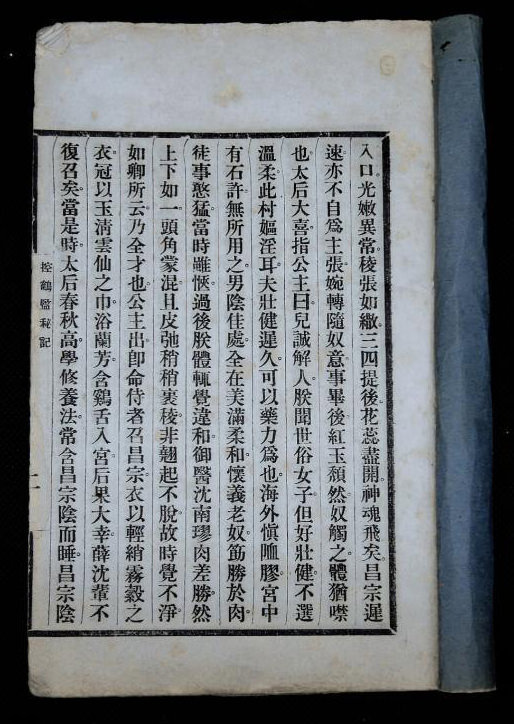 入口光嫩異常稜張如繖三四提後花蕊盡開神魂飛矣昌宗遲
速亦不自爲主張婉轉隨奴意事畢後紅玉頹然奴觸之體猶噤
也太后大喜指公主曰兒誠解人朕聞世俗女子但好壯健不選
溫柔此村嫗淫耳夫壯健遲久可以藥力爲也海外愼卹膠宮中
有石許無所用之男陰佳處全在美滿柔和懷義老奴筋勝於肉
徒事憨猛當時雖愜過後朕體輒覺違和御醫沈南璆肉差勝然
上下如一頭角蒙混且皮弛稍稍裹稜非翹起不脫故時覺不淨
如卿所云乃全才也公主出卽命侍者召昌宗衣以輕綃霧縠之
衣冠以玉淸雲仙之巾浴蘭芳含鷄舌入宮后果大幸薛沈輩不
復召矣當是時太后春秋高學修養法常含昌宗陰而睡昌宗陰
控鶴監秘記